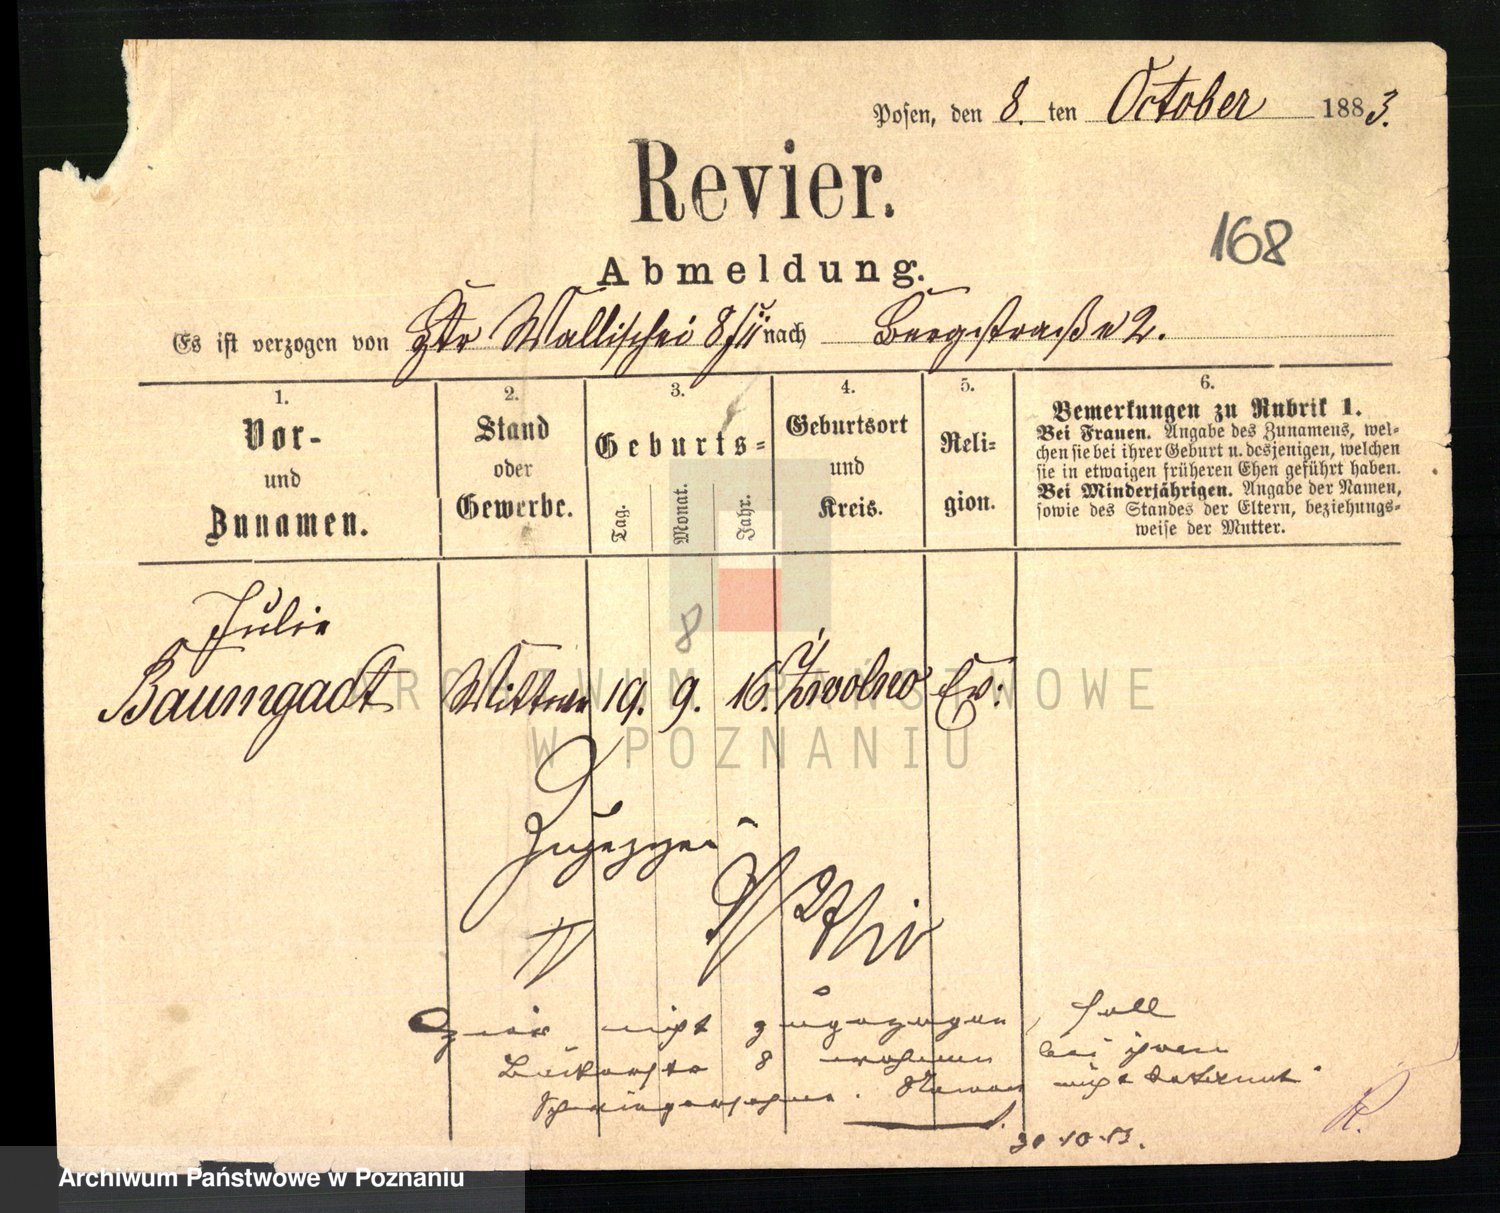 Posen, den 8. ten October 1883.
Revier.
168
Abmeldung.
Es ist verzogen von Wallischei 8/II nach Bergstraße 2.
1.
Vor-
und
Zunamen.
2.
Stand
oder
Gewerbe.
3.
Geburts-
Tag.
Monat.
Jahr.
4.
Geburtsort
und
Kreis.
5.
Reli-
gion.
6.
Bemerkungen zu Rubrik 1.
Bei Frauen. Angabe des Zunamens, wel-
chen sie bei ihrer Geburt u. desjenigen, welchen
sie in etwaigen früheren Ehen geführt haben.
Bei Minderjährigen. Angabe der Namen,
sowie des Standes der Eltern, beziehungs-
weise der Mutter.
Julie
8
Baumgadt Wittwe 19. 9. 16. Ev:
ARCHIWUM PAŃSTWOWE
W POZNANIU
Zugezogen
nicht zugezogen, soll
8 wohnen bei ihrem
Schwiegersohne. nicht bekannt.
30.10.83.
R.
Archiwum Państwowe w Poznaniu